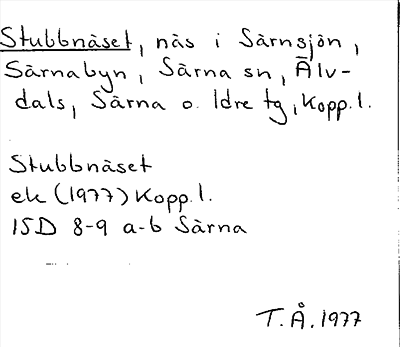 Stubbnäset, näs i Särnsjön,
Särnabyn, Särna sn, Älv-
dals, Särna o. Idre tg, Kopp. l.
Stubbnäset
ek (1977) Kopp. l.
15D 8-9 a-b Särna
T. Å. 1977